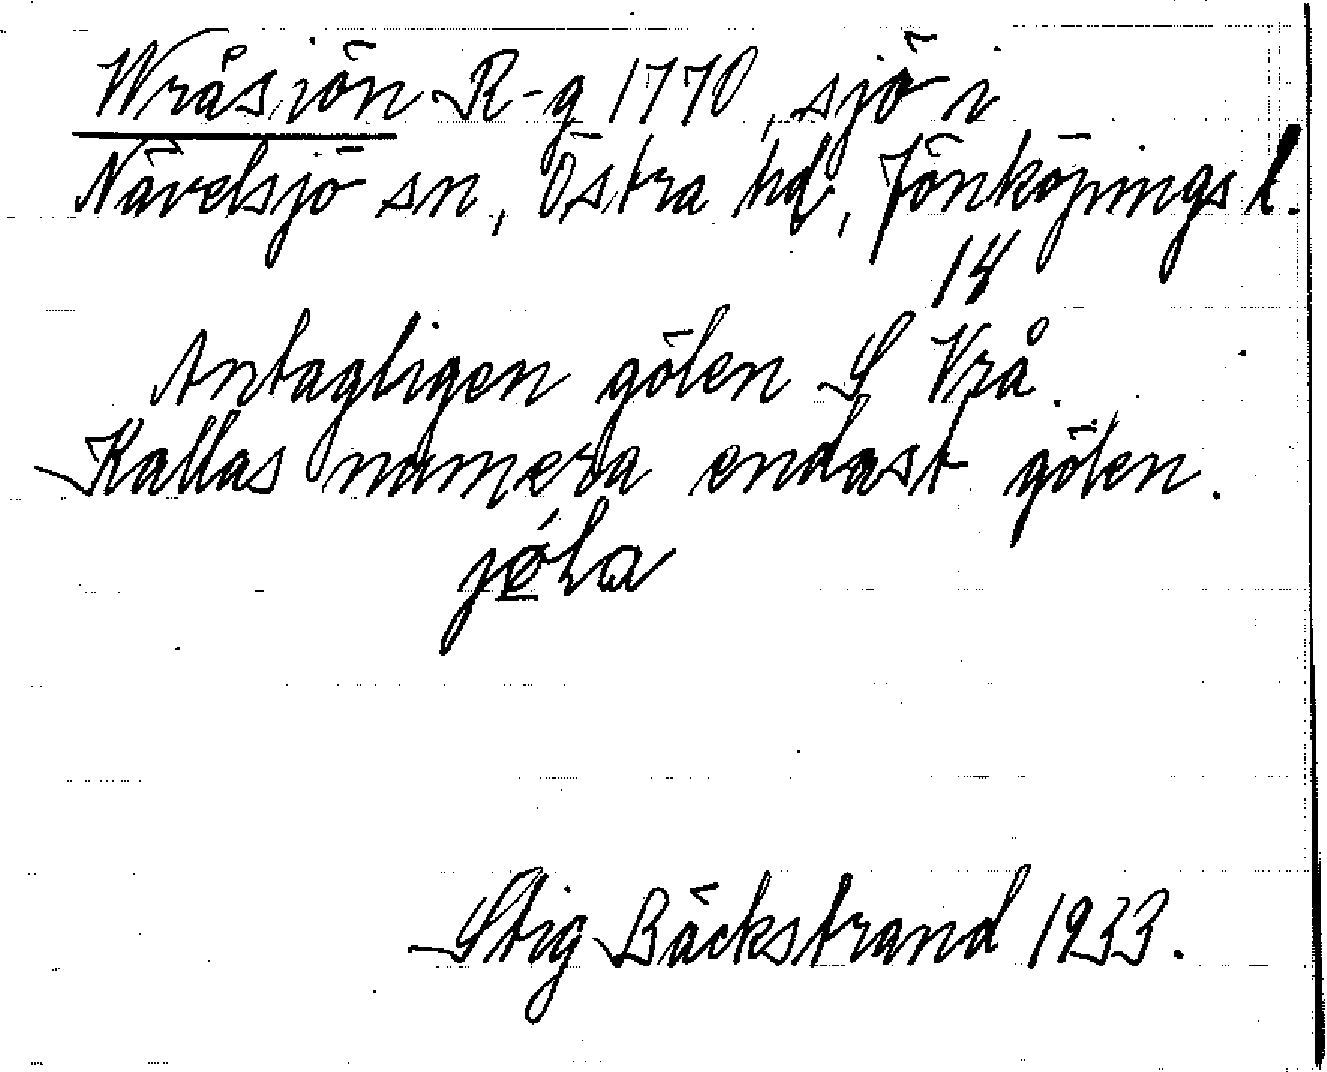 Wråsiön R-g 1770, sjö i
Nävelsjö sn, Östra hd, Jönköpings l.
14
Antagligen gölen S Vrå.
Kallas numera endast gölen.
Stig Bäckstrand 1933.